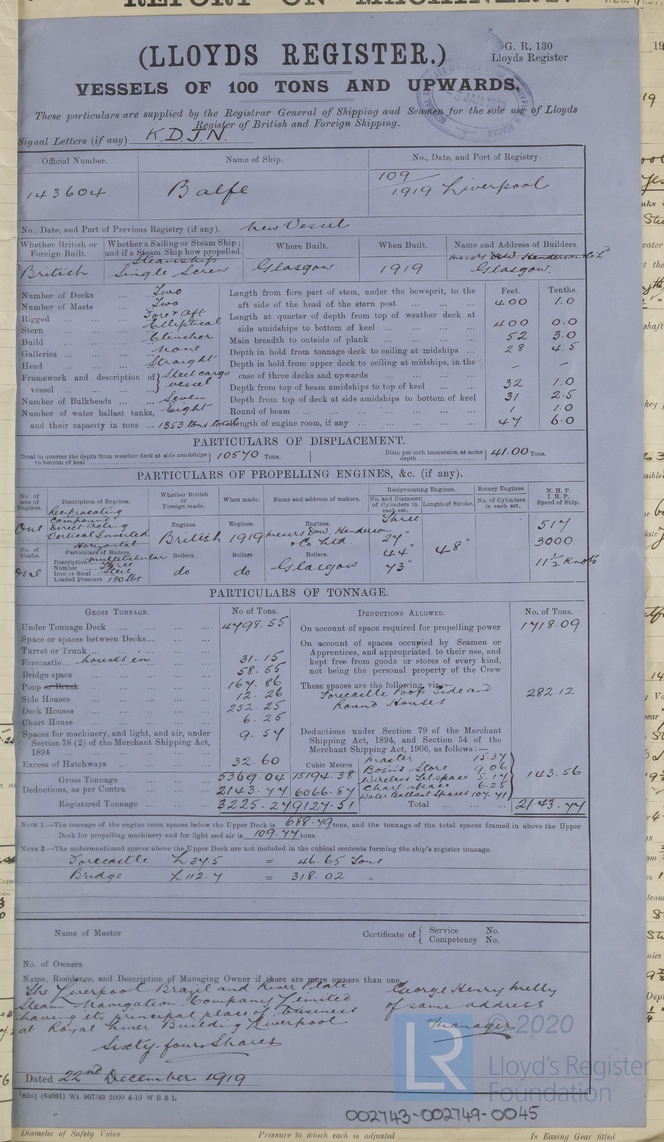 (LLOYDS REGISTER.)
G. R. 130
Lloyds Register
VESSELS OF 100 TONS AND UPWARDS.
These particulars are supplied by the Registrar General of Shipping and Seamen for the sole use of Lloyds
Register of British and Foreign Shipping.
Signal Letters (if any) K.D.J.N.
Official Number. Name of Ship. No., Date, and Port of Registry.
143604 Balfe 109/1919 Liverpool
No., Date, and Port of Previous Registry (if any). New Vessel
Whether British or Foreign Built. Whether a Sailing or Steam Ship; and if a Steam Ship how propelled. Where Built. When Built. Name and Address of Builders.
British Steamship Single Screw Glasgow 1919 Glasgow.
Number of Decks ... Two
Number of Masts ... Two
Rigged ... Fore & Aft
Stern ... Elliptical
Build ... Clencher
Galleries ... None
Head ... Straight
Framework and description of vessel ... Steel cargo vessel
Number of Bulkheads ... Seven
Number of water ballast tanks, Eight
and their capacity in tons ... 1353 tons total
Feet. Tenths.
Length from fore part of stem, under the bowsprit, to the aft side of the head of the stern post ... 400 1.0
Length at quarter of depth from top of weather deck at side amidships to bottom of keel ... 400 0.0
Main breadth to outside of plank ... 52 3.0
Depth in hold from tonnage deck to ceiling at midships ... 28 4.5
Depth in hold from upper deck to ceiling at midships, in the case of three decks and upwards ... – –
Depth from top of beam amidships to top of keel ... 32 1.0
Depth from top of deck at side amidships to bottom of keel 31 2.5
Round of beam ... 1 1.0
Length of engine room, if any ... 47 6.0
PARTICULARS OF DISPLACEMENT.
Total to quarter the depth from weather deck at side amidships to bottom of keel 10570 Tons. Ditto per inch immersion at same depth 41.00 Tons.
PARTICULARS OF PROPELLING ENGINES, &c. (if any).
No. of sets of Engines. Description of Engines. Whether British or Foreign made. When made. Name and address of makers. Reciprocating Engines. No. and Diameter of Cylinders in each set. Length of Stroke. Rotary Engines. No. of Cylinders in each set. N. H. P. I. H. P. Speed of Ship.
One Reciprocating Compound Direct Acting Vertical Inverted
Engines. British Engines. 1919 Engines. Henderson & Co Ltd. Three 27" 44" 73" 48" 517 3000 11½ Knots
No. of Shafts. One
Particulars of Boilers. Description Horizontal multitubular
Number Three
Iron or Steel Steel
Loaded Pressure 180 lbs
Boilers. do Boilers. do Boilers. Glasgow
PARTICULARS OF TONNAGE.
GROSS TONNAGE. No. of Tons. DEDUCTIONS ALLOWED. No. of Tons.
Under Tonnage Deck ... 4798.55
Space or spaces between Decks ...
Turret or Trunk ...
Forecastle ... houses in 31.15
Bridge space ... 58.55
Poop or Break ... 167.86
Side Houses ... 12.26
Deck Houses ... 252.25
Chart House ... 6.25
Spaces for machinery, and light, and air, under Section 78 (2) of the Merchant Shipping Act, 1894 ... 9.57
Excess of Hatchways ... 32.60
Cubic Metres
Gross Tonnage 5369.04 15194.38
Deductions, as per Contra ... 2143.77 6066.87
Registered Tonnage 3225.27 9127.51
On account of space required for propelling power 1718.09
On account of spaces occupied by Seamen or Apprentices, and appropriated to their use, and kept free from goods or stores of every kind, not being the personal property of the Crew
These spaces are the following, viz:—
Forecastle Poop Side and Round Houses 282.12
Deductions under Section 79 of the Merchant Shipping Act, 1894, and Section 54 of the Merchant Shipping Act, 1906, as follows:—
Master 15.37
Bosn's Store 9.06
Wireless Tel space 5.17
Chart space 6.25
Water Ballast Spaces 107.71
143.56
Total ... 2143.77
NOTE 1.—The tonnage of the engine room spaces below the Upper Deck is 688.79 tons, and the tonnage of the total spaces framed in above the Upper Deck for propelling machinery and for light and air is 109.77 tons.
NOTE 2.—The undermentioned spaces above the Upper Deck are not included in the cubical contents forming the ship's register tonnage.
Forecastle L 37.5 = 46.65 Tons
Bridge L 112.7 = 318.02 "
Name of Master Certificate of { Service No. Competency No.
No. of Owners
Name, Residence, and Description of Managing Owner if there are more owners than one
The Liverpool Brazil and River Plate
Steam Navigation Company Limited
having its principal place of business
at Royal Liver Building Liverpool
Sixty-four Shares
George Henry Melly
of same address
Manager
Dated 22nd December 1919
(835) (64991) Wt. 907/43 2000 4-19 W B & L
LR
© 2020
Lloyd's Register
Foundation
002743-002749-0045
Diameter of Safety Valve Pressure to which each is adjusted Is Easing Gear fitted